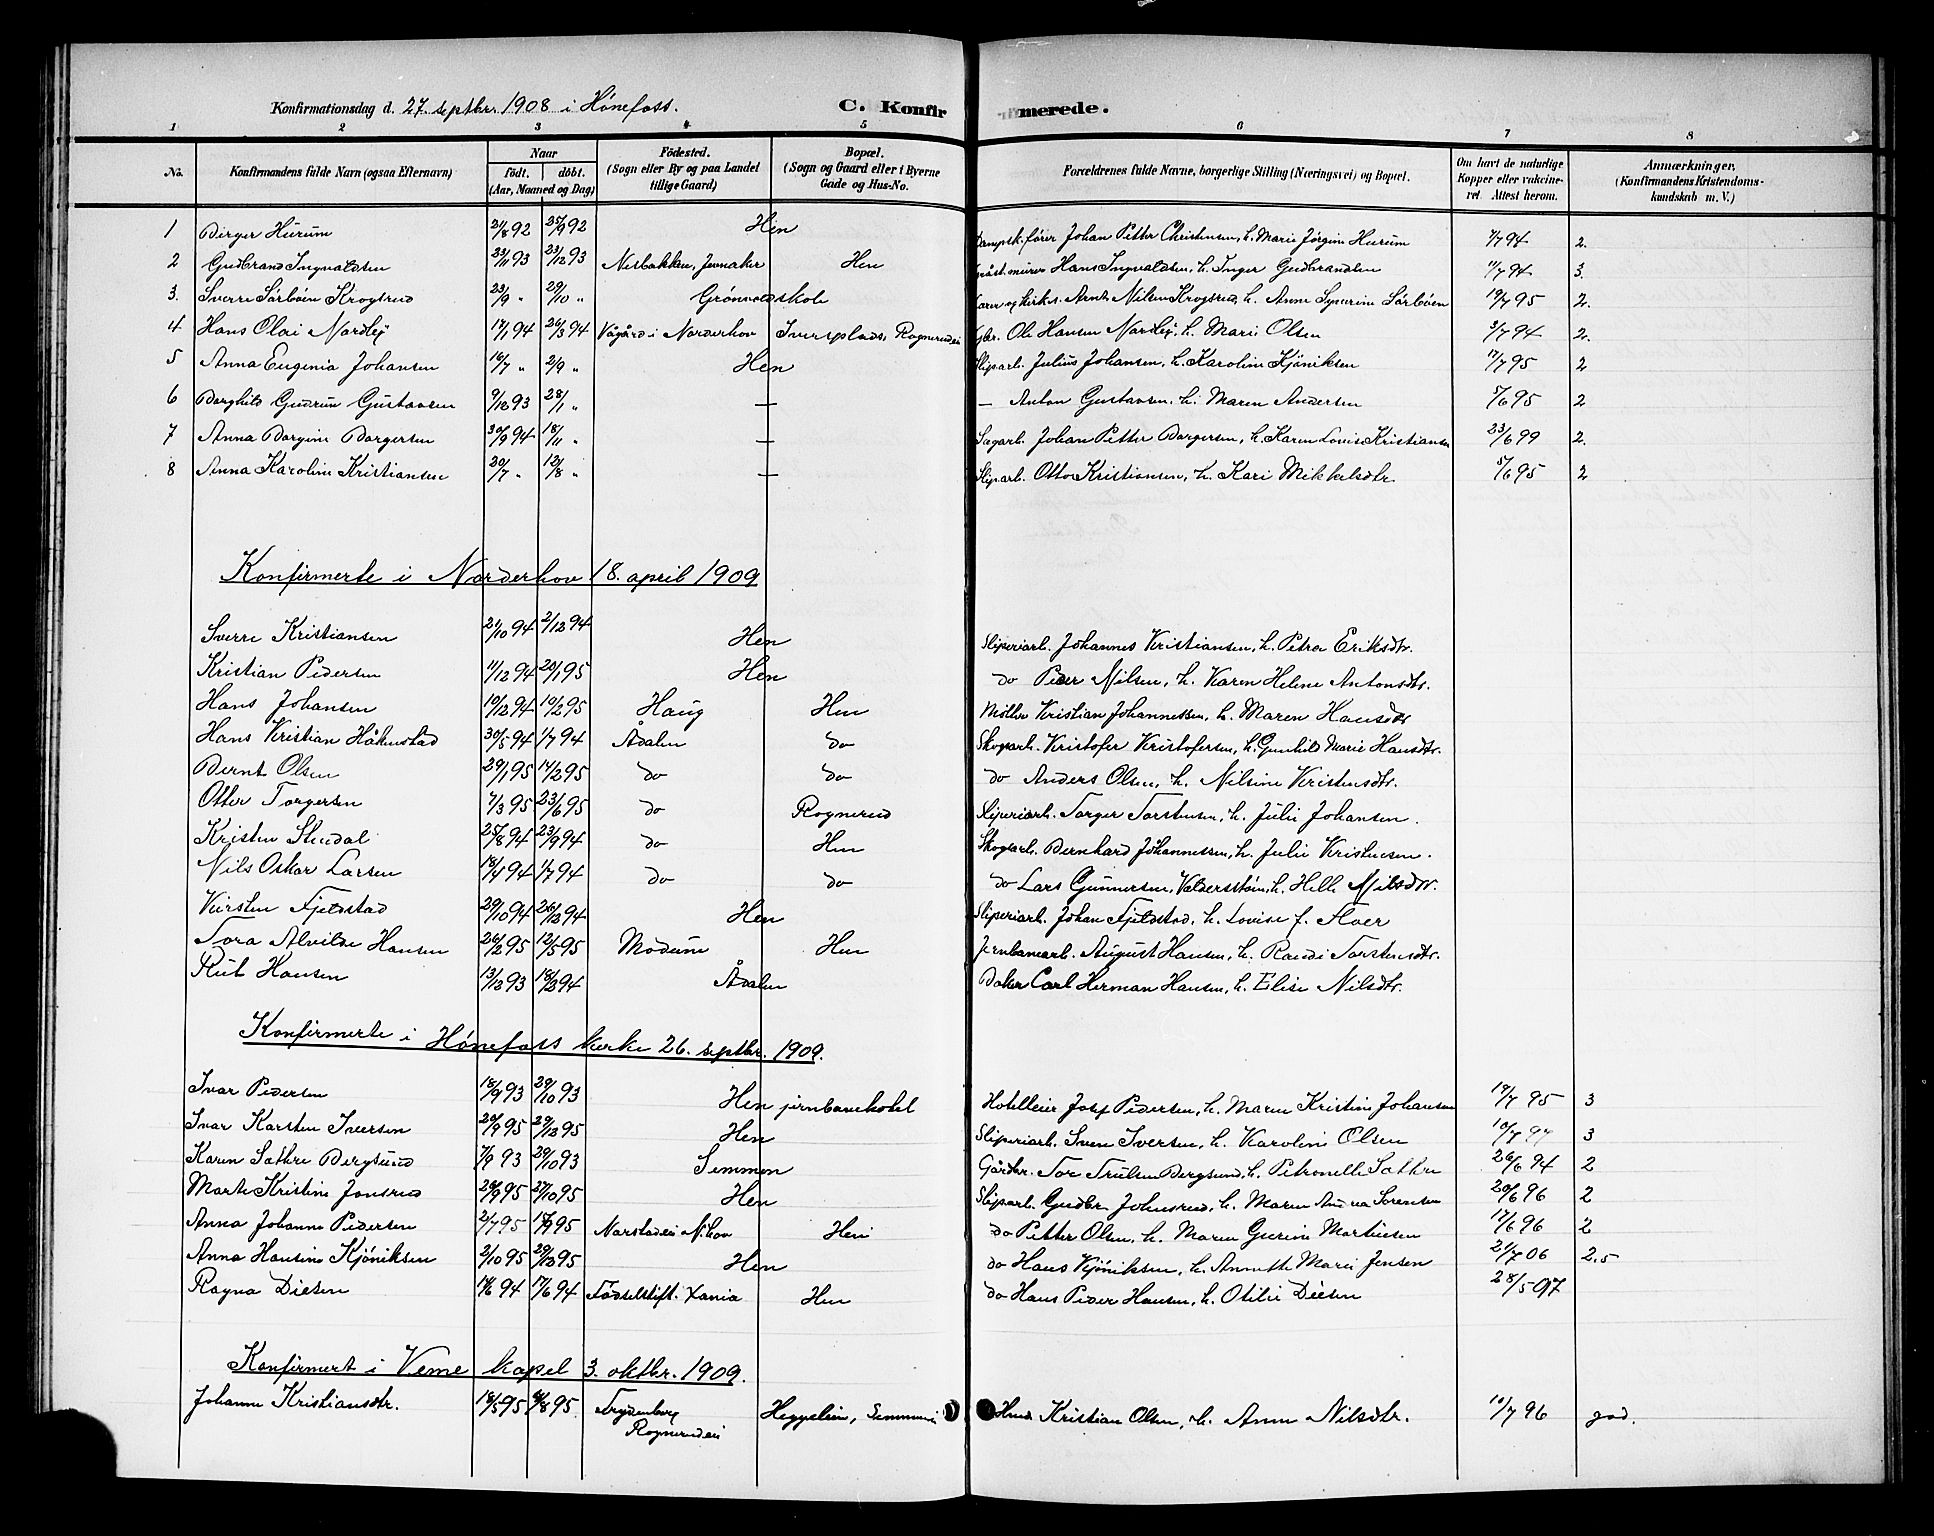 Konfirmationsdag d. 27. septbr. 1908 i Hönefoss. C. Konfirmerede.
1 2 3 4 5 6 7 8
No. Konfirmandens fulde Navn (ogsaa Efternavn) Naar födt. döbt. (Aar, Maaned og Dag) Födested. (Sogn eller By og paa Landet tillige Gaard) Bopæl. (Sogn og Gaard eller i Byerne Gade og Hus-No. Forældrenes fulde Navne, borgerlige Stilling (Næringsvei) og Bopæl. Om havt de naturlige Kopper eller vakcineret. Attest herom. Anmærkninger, (Konfirmandens Kristendomskundskab m. V.)
1 Birger Hurum 21/8 92 25/9 92 Hen Dampsk.förer Johan Petter Christensen, h. Marie Jörgine Hurum 7/7 94 2.
2 Gudbrand Ingvaldsen 22/11 93 23/12 93 Nesbakken, Jevnaker Hen Gråst.murer Hans Ingvaldsen, h. Inger Gudbrandsen 11/7 94 3.
3. Sverre Sörböen Krogsrud 23/9 " 29/10 " Grönvold skole Lærer og kirkes. Arnt Nilsen Krogsrud, h. Anne Syverine Sörböen 19/7 95 2.
4 Hans Olai Nordby 17/1 94 26/3 94 Vågård i Norderhov Iversplads, Rognerudei Gbr. Ole Hansen Nordby, h. Marie Olsen 3/7 94 2.
5 Anna Eugenia Johansen 16/7 " 2/9 " Hen Sliparb. Julius Johansen, h. Karoline Kjöniksen 17/7 95 2
6 Borghild Gudrun Gustavsen 9/12 93 28/1 " — — Anton Gustavsen, h. Maren Andersen 5/6 95 2
7 Anna Borgine Borgersen 30/9 94 18/11 " — Sagarb. Johan Petter Borgersen, h. Karen Louise Kristiansen 23/6 99 2.
8 Anna Karoline Kristiansen 20/7 " 12/8 " — Sliparb. Otto Kristiansen, h. Kari Mikkelsdtr 5/6 95 2
Konfirmerte i Norderhov 18. april 1909
Sverre Kristiansen 21/10 94 2/12 94 Hen Sliperiarb. Johannes Kristiansen, h. Petra Eriksdtr.
Kristian Pedersen 11/12 94 20/1 95 Hen do Peder Nilsen, h. Karen Helene Antonsdtr.
Hans Johansen 10/12 94 10/2 95 Haug Hen Möller Kristian Johannessen, h. Maren Hansdtr
Hans Kristian Håkenstad 30/5 94 1/7 94 Ådalen do Skogarb. Kristofer Kristofersen, h. Gunhild Marie Hansdtr.
Bernt Olsen 29/1 95 17/2 95 do do do Anders Olsen, h. Nilsine Kristensdtr.
Otter Torgersen 7/3 95 23/6 95 do Rognerud Sliperiarb. Torger Torstensen, h. Julie Johansen.
Kristen Stendal 25/8 94 23/9 94 do Hen Skogarb. Bernhard Johannessen, h. Julie Kristensen.
Nils Oskar Larsen 18/4 94 1/7 94 do do do Lars Gunnersen, h. Helle Nilsdtr.
Kirsten Fjeldstad 29/10 94 26/12 94 Hen Sliperiarb. Johan Fjeldstad, h. Lovise f. Floer
Tora Alvilde Hansen 26/2 95 12/5 95 Modum Hen Jernbanearb. August Hansen, h. Randi Torstensdtr.
Rut Hansen 13/12 93 18/2 94 Ådalen Baker Carl Herman Hansen, h. Elise Nilsdtr.
Konfirmerte i Hönefoss kirke 26. septbr. 1909.
Ivar Pedersen 18/9 93 29/10 93 Hen jernbanehotel Hotelleier Josef Pedersen, h. Maren Kristine Johansen 19/7 95 3
Ivar Karsten Iversen 20/9 95 29/12 95 Hen Sliperiarb. Sven Iversen, h. Karoline Olsen 10/7 97 3
Karen Sathre Bergsund 7/9 93 29/10 93 Semmen Gårdbr. Tor Trulsen Bergsund, h. Petronelle Sathre 26/6 94 2
Marte Kristine Jonsrud 20/9 95 27/10 95 Hen Sliparb. Gudbr. Johnsrud, h. Maren Anna Sorensen 20/6 96 2
Anna Johanne Pedersen 2/7 95 15/9 95 Norstadei N.hov Hen do Petter Olsen, h. Maren Gurine Martinsen 17/6 96 2
Anna Hansine Kjöniksen 2/10 95 29/12 95 Hen do Hans Kjöniksen, h. Annette Marie Jensen 21/7 06 2.5
Ragna Diesen 14/6 94 17/6 94 Födselstift. Xania Hen do Hans Peder Hansen, h. Otilie Diesen 28/5 97
Konfirmert i Veme kapel 3. oktbr. 1909.
Johanne Kristiansdtr. 18/5 95 4/8 95 Frydenberg Heggeleien, Semmenei Husm. Kristian Olsen, h. Anne Nilsdtr. 10/7 96 god.
Rognerudei